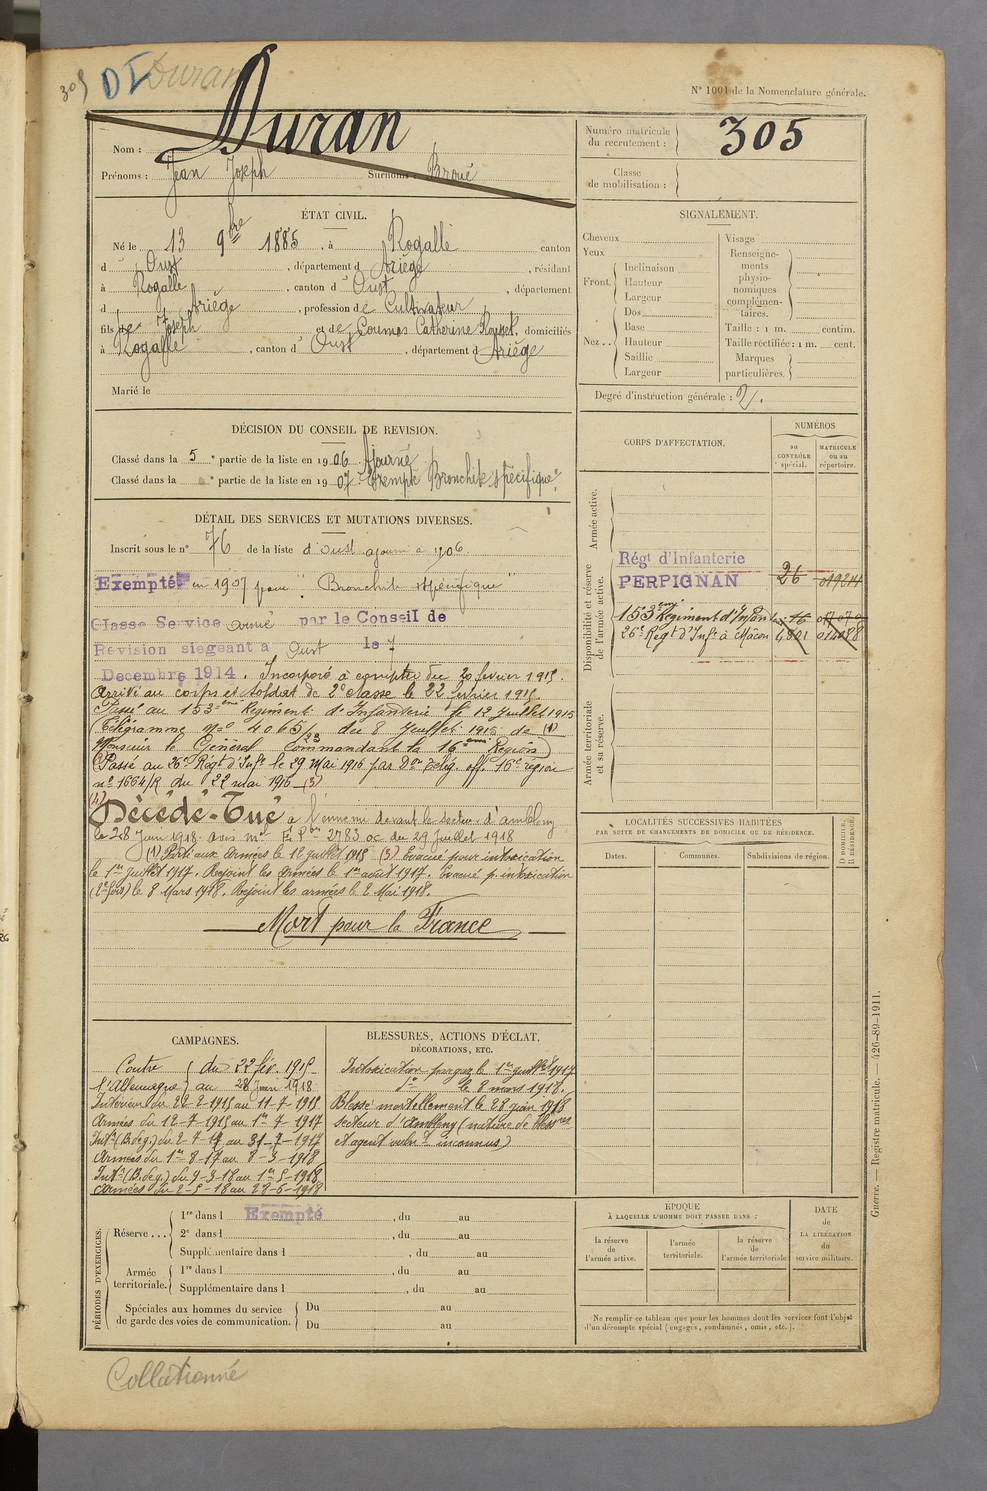 305
DI Duran
N° 1001 de la Nomenclature générale.
Nom : Duran
Prénoms : Jean Joseph Surnoms : Broué
Numéro matricule du recrutement : 305
Classe de mobilisation :
ÉTAT CIVIL.
Né le 13 9bre 1885, à Rogalle canton
d Oust, département d Ariège, résidant
à Rogalle, canton d Oust, département
d Ariège, profession de Cultivateur
fils de Joseph et de Coumes Catherine Rousset, domiciliés
à Rogalle, canton d Oust, département d Ariège
Marié le
SIGNALEMENT.
Cheveux
Yeux
Front. Inclinaison
Hauteur
Largeur
Nez.. Dos
Base
Hauteur
Saillie
Largeur
Visage
Renseignements physionomiques complémentaires.
Taille : 1 m. centim.
Taille rectifiée : 1 m. cent.
Marques particulières.
Degré d'instruction générale : 2.
DÉCISION DU CONSEIL DE REVISION.
Classé dans la 5e partie de la liste en 1906. Ajourné
Classé dans la e partie de la liste en 1907. Exempté Bronchite spécifique
DÉTAIL DES SERVICES ET MUTATIONS DIVERSES.
Inscrit sous le n° 76 de la liste d'Oust ajourné à 1906
Exempté en 1907 pour "Bronchite spécifique"
Classe Service armé par le Conseil de
Revision siégeant à Oust le 7
Decembre 1914. Incorporé à compter du 20 février 1915.
Arrivé au corps et soldat de 2e classe le 22 février 1915.
Passé au 153eme Regiment d'Infanterie le 12 Juillet 1915
(Télégramme no 4065/23 du 8 Juillet 1915 de (1)
Monsieur le Général Commandant la 16eme Region)
Passé au 26e Régt d'Infie le 29 Mai 1916 par Don télég. off. 16e région
n° 1664/R du 22 mai 1916 (3)
(4)
Décédé-Tué à l'ennemi devant le secteur d'ambleny
le 28 Juin 1918 avis mel 2783 oc du 29 Juillet 1918
(1) Parti aux Armées le 12 juillet 1915 (3) Evacué pour intoxication
le 1er juillet 1917. Rejoint les armées le 1er août 1917. Evacué p. intoxication
(2e fois) le 8 Mars 1918. Rejoint les armées le 2 Mai 1918.
Mort pour la France
CORPS D'AFFECTATION.
NUMÉROS
AU CONTRÔLE spécial.
MATRICULE ou au répertoire.
Armée active.
Disponibilité et réserve de l'armée active.
Régt d'Infanterie
PERPIGNAN 26
153eme Regiment d'Infan
26e Régt d'Infie à Mâcon 4801 014088
Armée territoriale et sa réserve.
LOCALITÉS SUCCESSIVES HABITÉES
PAR SUITE DE CHANGEMENTS DE DOMICILE OU DE RÉSIDENCE.
Dates.
Communes.
Subdivisions de région.
D DOMICILE. R RÉSIDENCE.
CAMPAGNES.
Contre l'Allemagne (du 22 fév. 1915
au 28 Juin 1918
Intérieur du 22-2-1915 au 11-7-1915
Armées du 12-7-1915 au 1er-7-1917
Intr (B. deg.) du 2-7-17 au 31-7-1917
Armées du 1er-8-17 au 8-3-1918
Intr (B. deg.) du 9-3-18 au 1er-5-1918
Armées du 2-5-18 au 28-6-1918
BLESSURES, ACTIONS D'ÉCLAT,
DÉCORATIONS, ETC.
Intoxication par gaz le 1er juillet 1917
do le 8 mars 1918.
Blessé mortellement le 28 juin 1918
secteur d'Ambleny (nature de blessures
et agent vulnt inconnus)
PÉRIODES D'EXERCICES.
Réserve ... 1re dans l Exempté, du au
2e dans l, du au
Supplémentaire dans l, du au
Armée territoriale. 1re dans l, du au
Supplémentaire dans l, du au
Spéciales aux hommes du service de garde des voies de communication. Du au
Du au
ÉPOQUE
À LAQUELLE L'HOMME DOIT PASSER DANS :
la réserve de l'armée active.
l'armée territoriale.
la réserve de l'armée territoriale
DATE de LA LIBÉRATION du service militaire.
Ne remplir ce tableau que pour les hommes dont les services font l'objet
d'un décompte spécial (engagés, condamnés, omis, etc.).
Guerre. — Registre matricule. — 426-89-1911.
Collationné